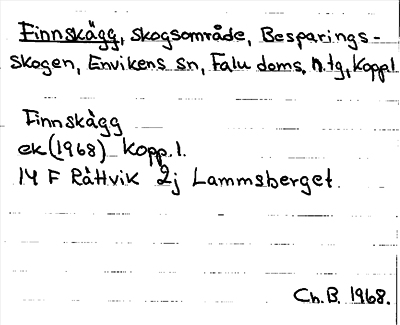 Finnskägg, skogsområde, Besparings-
skogen, Envikens sn, Falu doms. n. tg, Kopp.l
Finnskägg
ek (1968) Kopp. l.
14 F Rättvik 2j Lammsberget.
Ch. B. 1968.